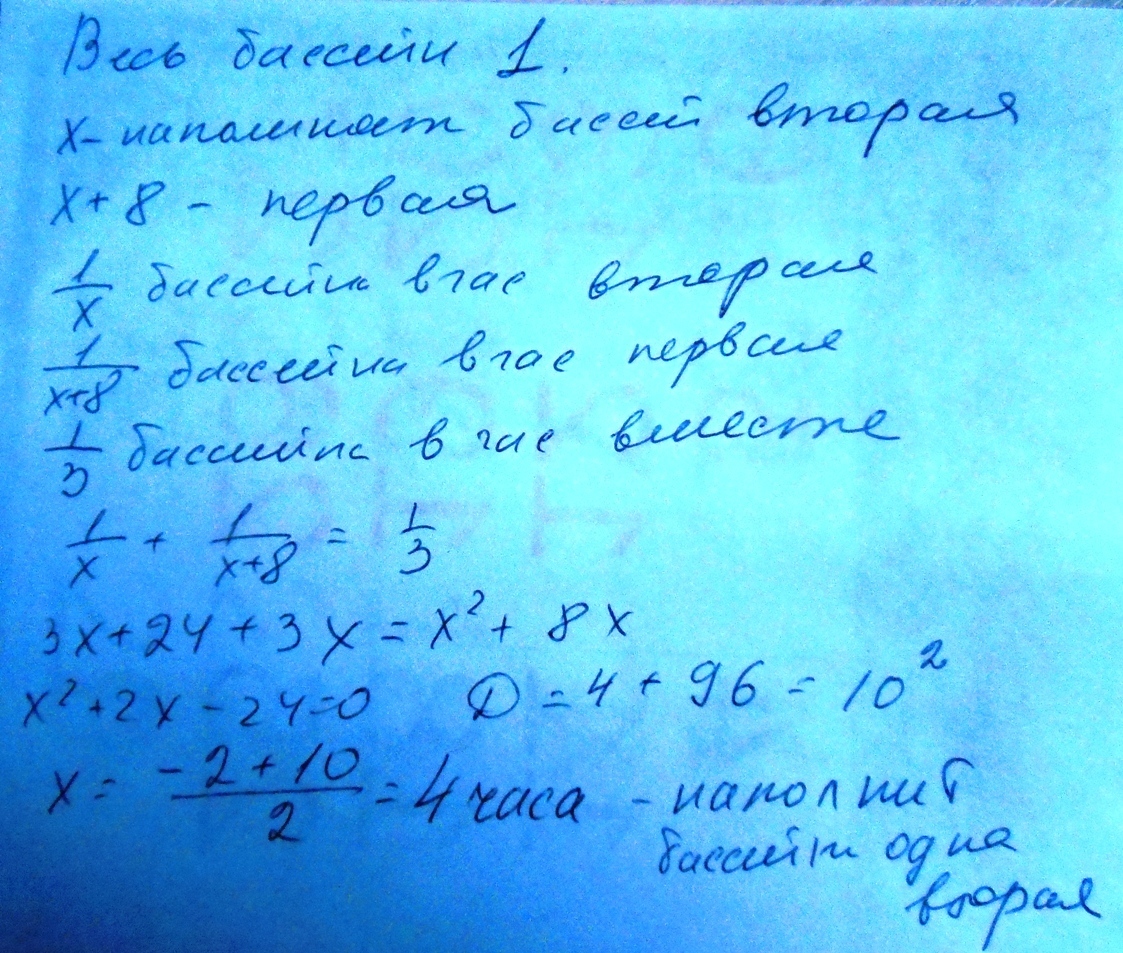 Весь бассейн 1.
x - наполняет бассейн вторая
x + 8 - первая
1/x бассейна в час вторая
1/(x+8) бассейна в час первая
1/3 бассейна в час вместе
1/x + 1/(x+8) = 1/3
3x + 24 + 3x = x² + 8x
x² + 2x - 24 = 0 D = 4 + 96 = 10²
x = (-2 + 10)/2 = 4 часа - наполнит
бассейн одна
вторая